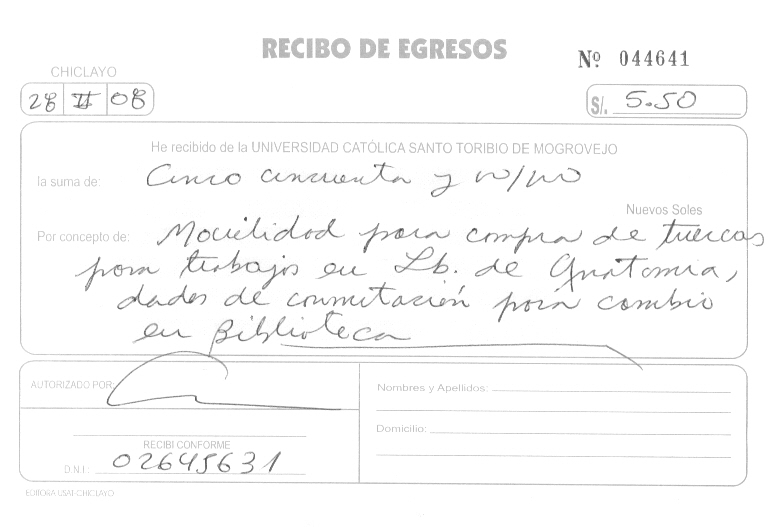 RECIBO DE EGRESOS
Nº 044641
CHICLAYO
28 II 08
S/. 5.50
He recibido de la UNIVERSIDAD CATÓLICA SANTO TORIBIO DE MOGROVEJO
la suma de: Cinco cincuenta y 00/100
Nuevos Soles
Por concepto de: Movilidad para compra de tuercas
para trabajos en Lb. de Anatomia,
dados de conmutación para cambio
en Biblioteca
AUTORIZADO POR:
Nombres y Apellidos:
Domicilio:
RECIBI CONFORME
D.N.I.: 02645631
EDITORA USAT-CHICLAYO